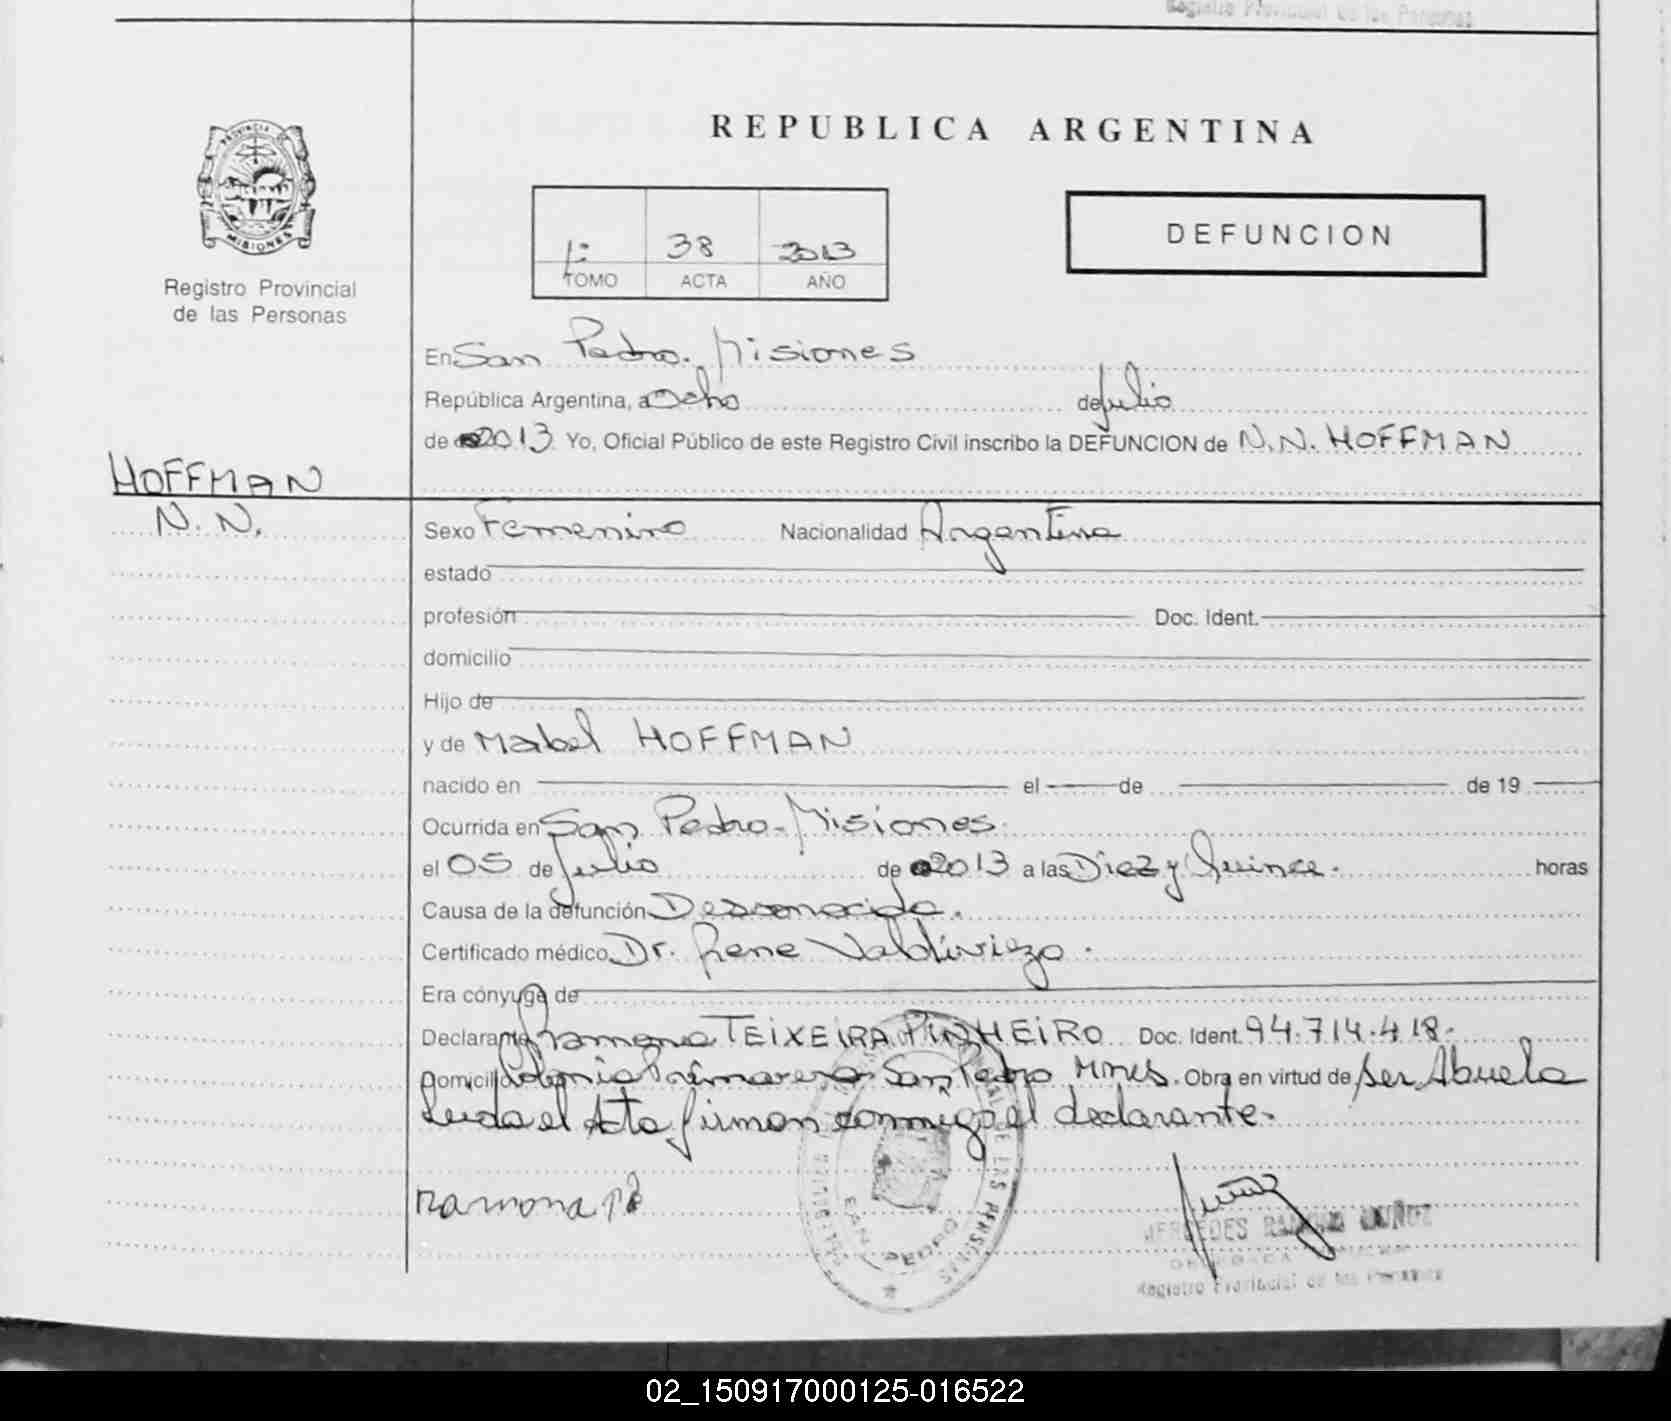 Registro Provincial de las Personas
REPUBLICA ARGENTINA
PROVINCIA DE
MISIONES
Registro Provincial
de las Personas
1: 38 2013
TOMO ACTA AÑO
DEFUNCION
En San Pedro. Misiones
República Argentina, a Ocho de Julio
de 2013 Yo, Oficial Público de este Registro Civil inscribo la DEFUNCION de N.N. HOFFMAN
HOFFMAN
N. N.
Sexo Femenino Nacionalidad Argentina
estado
profesión Doc. Ident.
domicilio
Hijo de
y de Mabel HOFFMAN
nacido en el de de 19
Ocurrida en San Pedro-Misiones.
el 05 de Julio de 2013 a las Diez y Quince. horas
Causa de la defunción Desconocida.
Certificado médico Dr. Rene Valdiviezo.
Era cónyuge de
Declarante Ramona TEIXEIRA PINHEIRO Doc. Ident. 94.714.418.
Domicilio Colonia Primavera San Pedro Mnes. Obra en virtud de ser Abuela
Leida el Acta firman conmigo el declarante.
Ramona
MERCEDES RAMONA MUÑOZ
DELEGADA
Registro Provincial de las Personas
DE LAS PERSONAS
SAN PEDRO
02_150917000125-016522